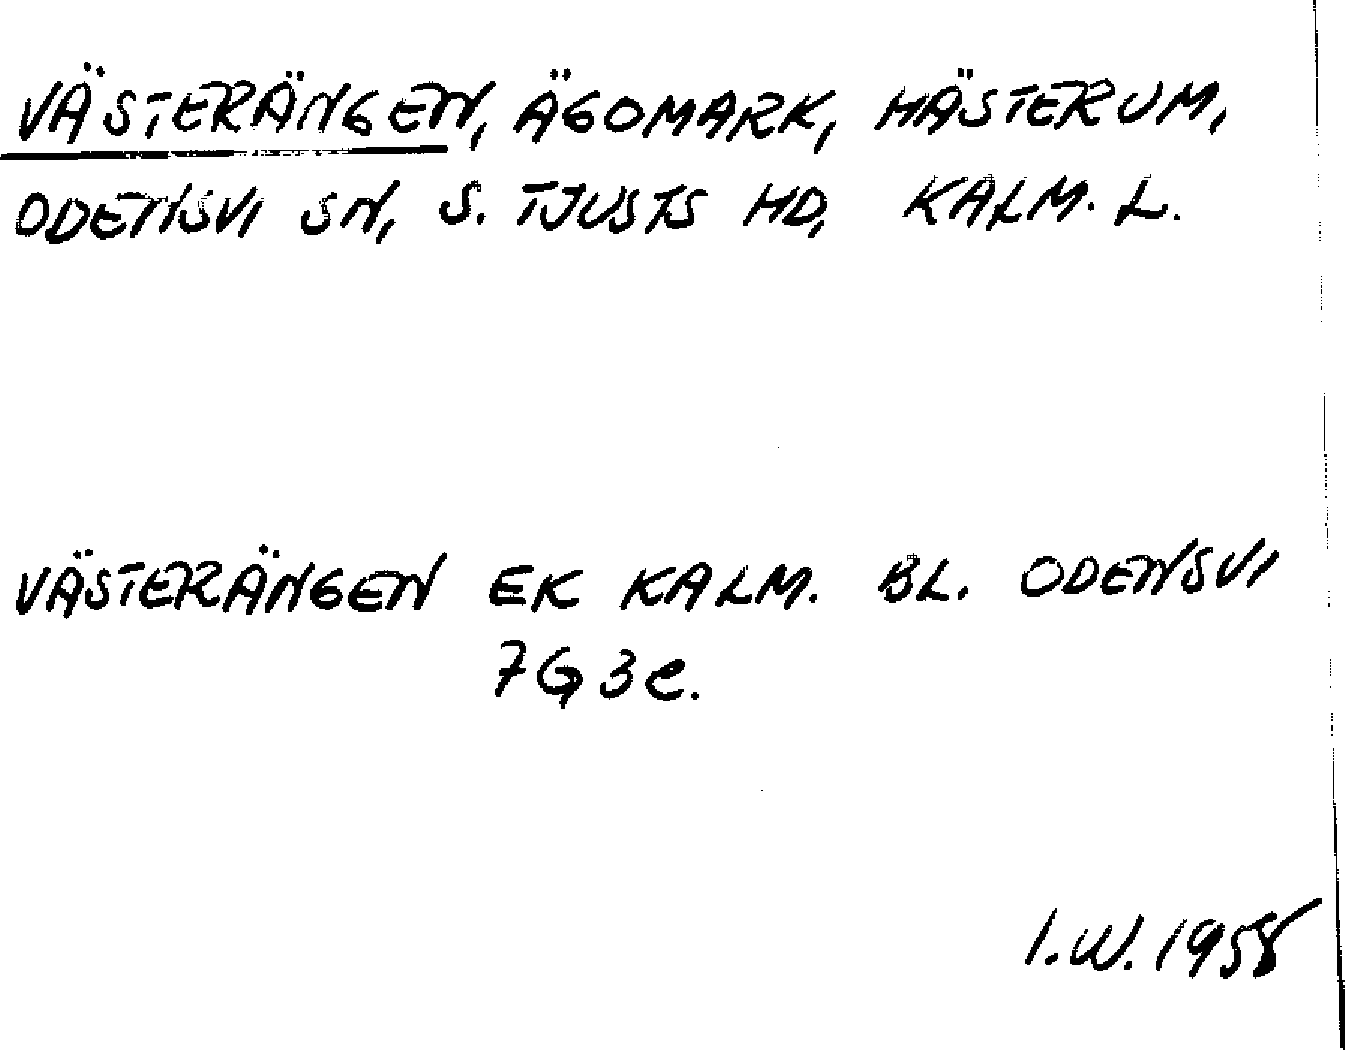 VÄSTERÄNGEN, ÄGOMARK, HÄSTERUM,
ODENSVI SN, S. TJUSTS HD, KALM. L.
VÄSTERÄNGEN EK KALM. BL. ODENSVI
7G3e.
I.W. 1958